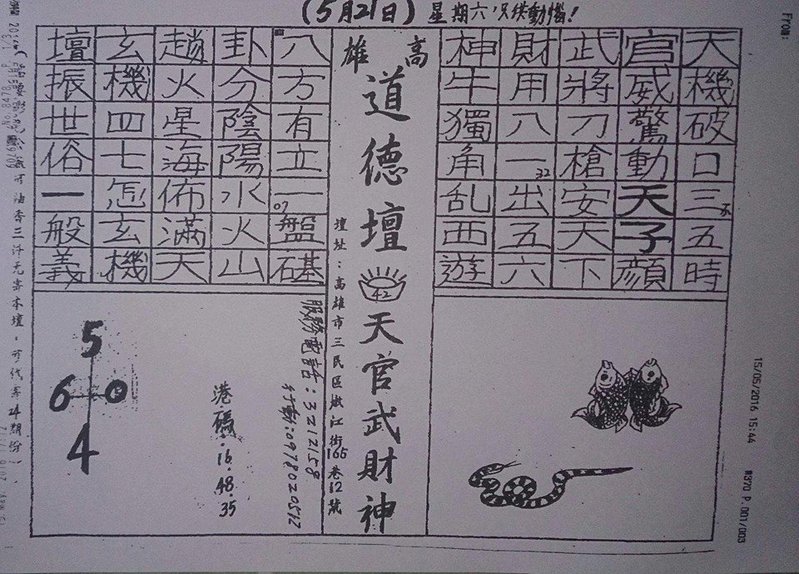 (5月21日) 星期六
From:
天機破口三五時
官威驚動天子顏
武將刀槍安天下
財用八一出五六
32
神牛獨角乱西遊
高雄
道德壇
42
天官武財神
壇址：高雄市三民區嫩江街165巷12號
八方有立一盤碁
07
卦分陰陽水火山
趙火星海佈滿天
玄機四七怎玄機
壇振世俗一般義
服務電話：3212158
行動：0978020512
港碼.16.48.35
5
6 0
4
15/05/2016 15:44
#370 P.001/003